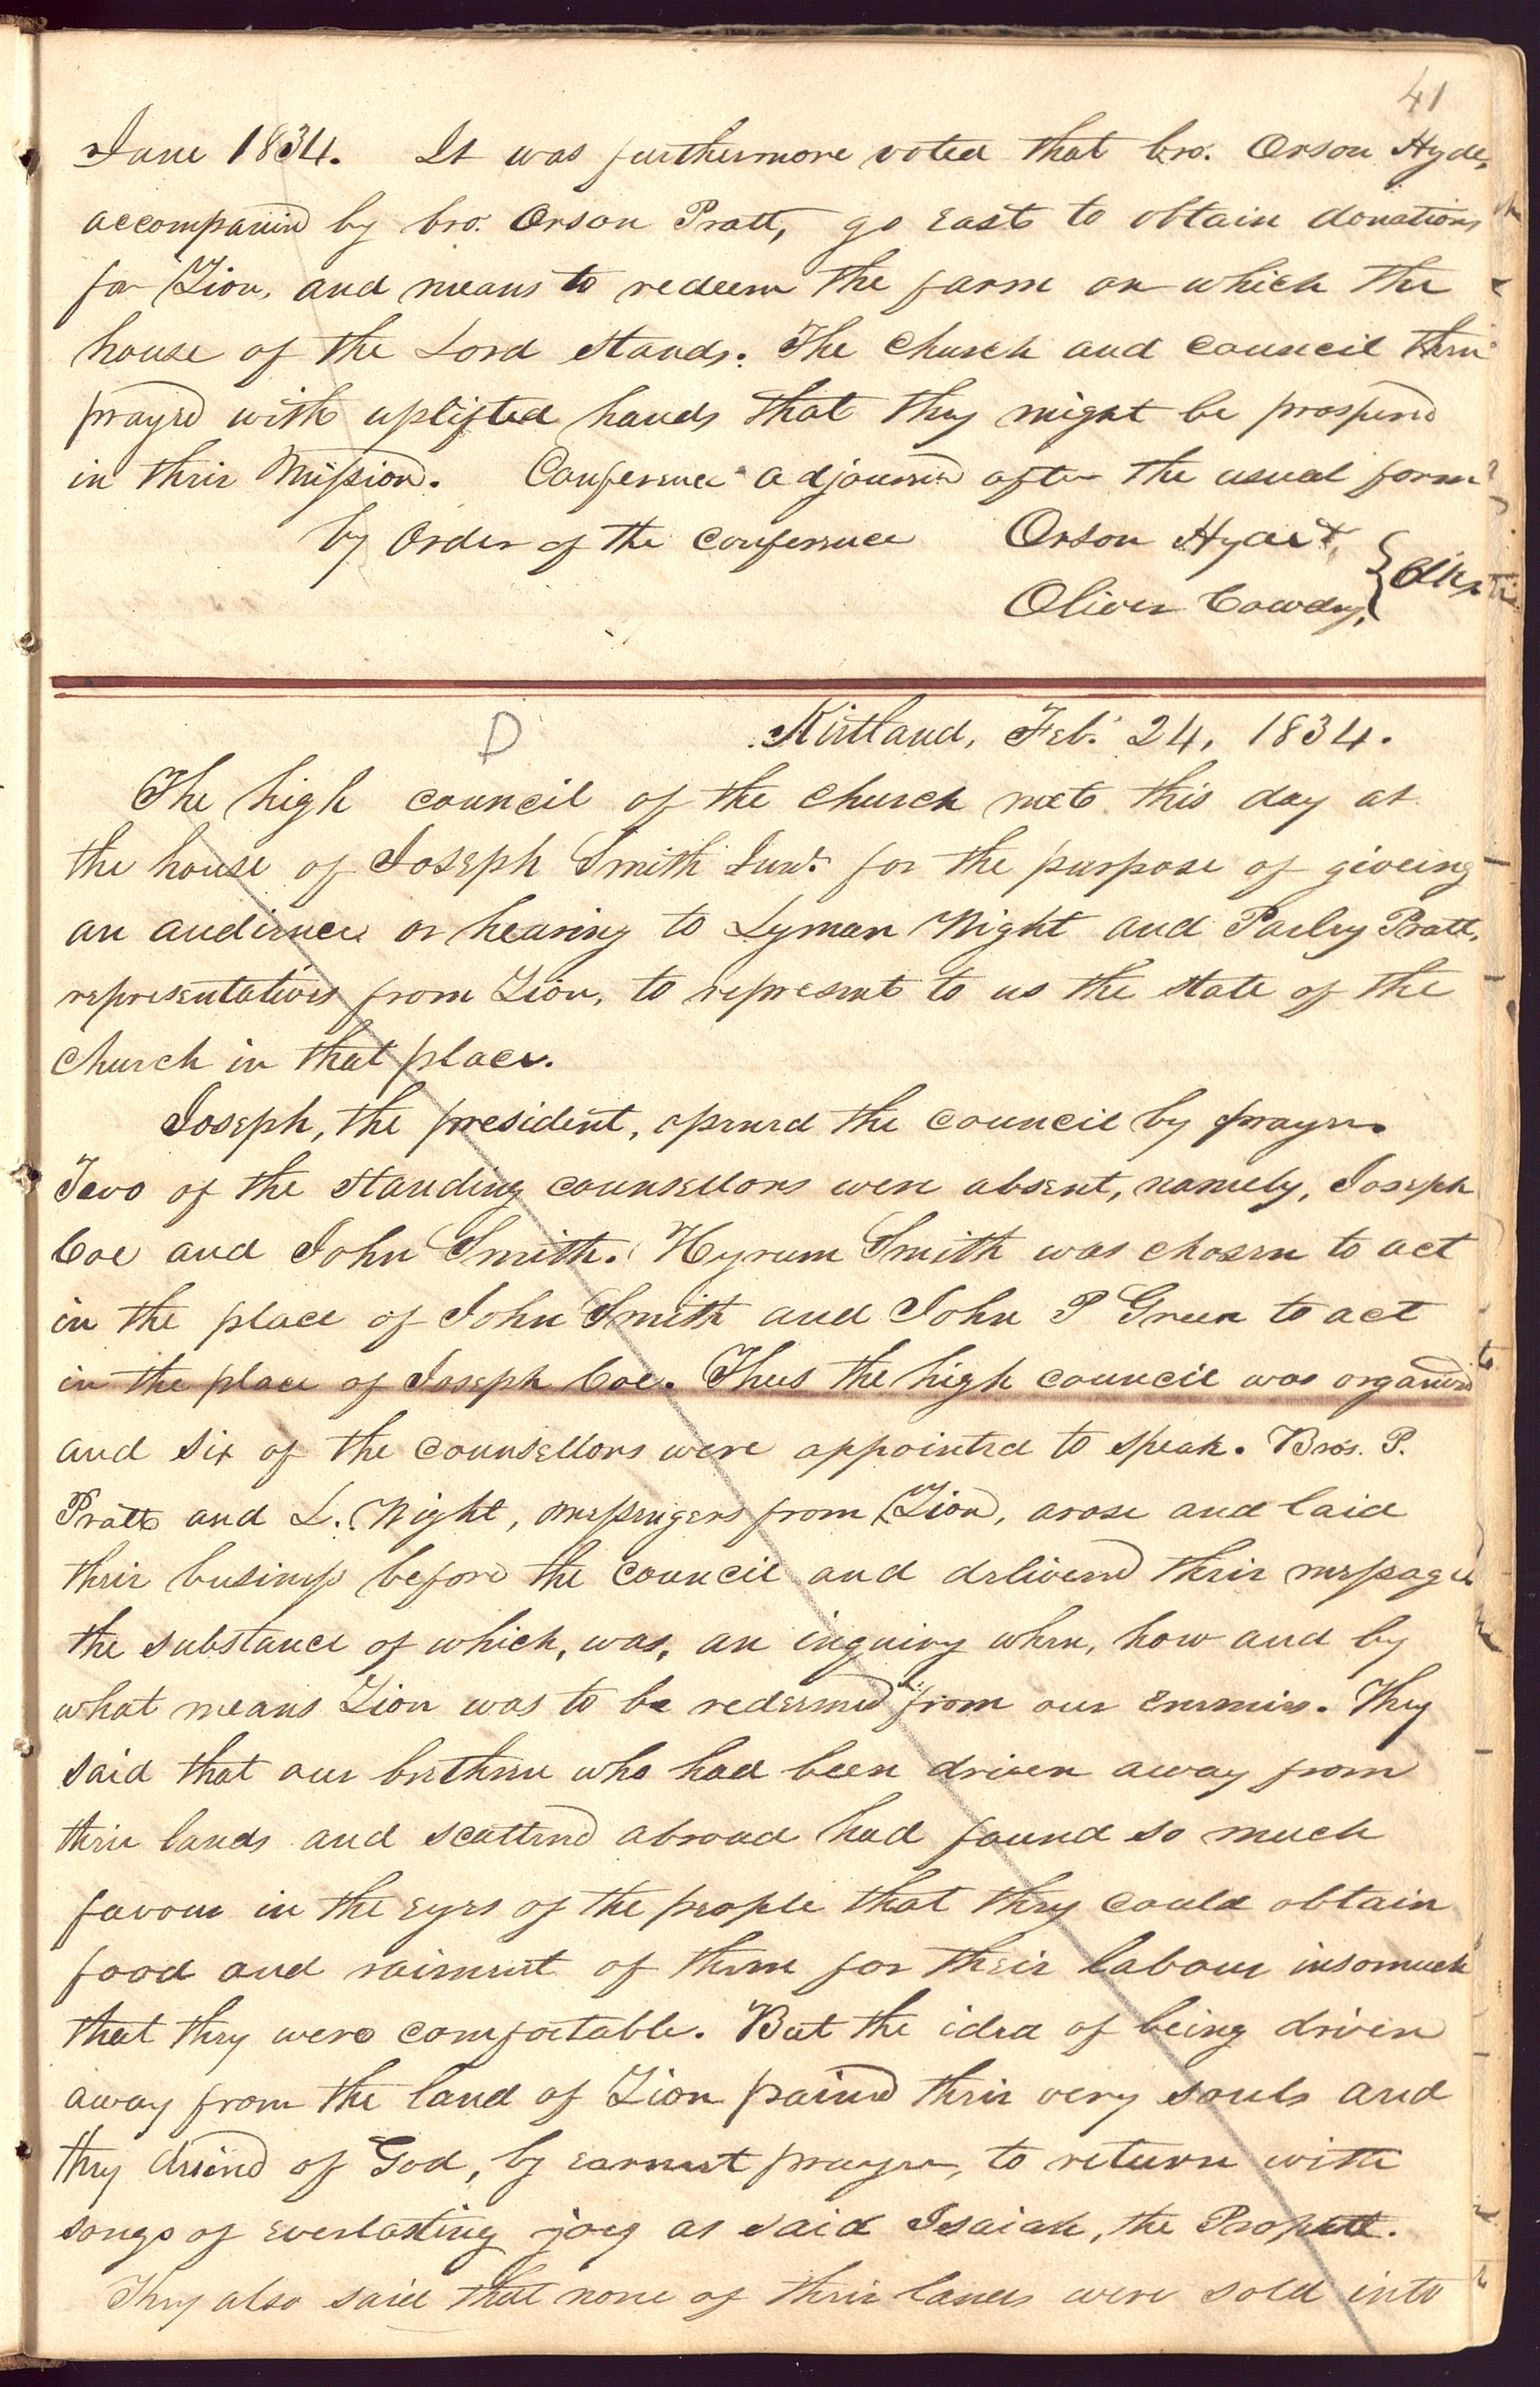 41
June 1834. It was furthermore voted that bro. Orson Hyde,
accompanied by bro. Orson Pratt, go east to obtain donations
for Zion, and means to redeem the farm on which the
house of the Lord stands. The church and council then
prayed with uplifted hands that they might be prospered
in their Mission. Conference adjourned after the usual form
by order of the conference Orson Hyde,
Oliver Cowdry, } Clks
D Kirtland, Feb. 24, 1834.
The high council of the church met this day at
the house of Joseph Smith Junr. for the purpose of giveing
an audience or hearing to Lyman Wight and Parley Pratt,
representatives from Zion, to represent to us the state of the
church in that place.
Joseph, the president, opened the council by prayer.
Two of the standing counsellors were absent, namely, Joseph
Coe and John Smith. Hyrum Smith was chosen to act
in the place of John Smith and John P Green to act
in the place of Joseph Coe. Thus the high council was organized
and six of the counsellors were appointed to speak. Bro's. P.
Pratt and L. Wight, messengers from Zion, arose and laid
their business before the council and delivered their message
the substance of which, was, an inquiry when, how and by
what means Zion was to be redeemed from our enemies. They
said that our brethren who had been driven away from
their lands and scattered abroad had found so much
favour in the eyes of the people that they could obtain
food and raiment of them for their labour insomuch
that they were comfortable. But the idea of being driven
away from the land of Zion pained their very souls and
they desired of God, by earnest prayer, to return with
songs of everlasting joy as said Isaiah, the Prophet.
They also said that none of their lands were sold into